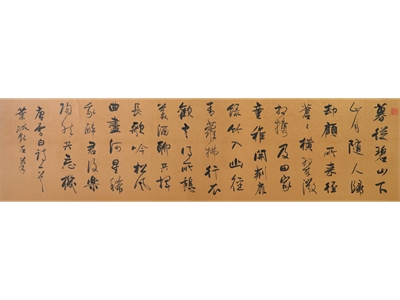 暮從碧山下
山月隨人歸
却顧所來徑
蒼々橫翠微
相攜及田家
童稚開荊扉
綠竹入幽徑
青蘿拂行衣
歡言得所憩
美酒聊共揮
長歌吟松風
曲盡河星稀
我醉君復樂
陶然共忘機
李白詩一首